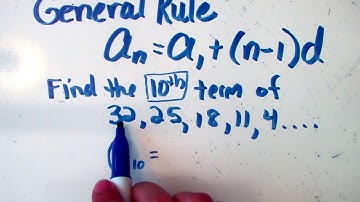 General Rule
aₙ = a₁ + (n-1)d
Find the 10th term of
32, 25, 18, 11, 4 ....
₁₀ =